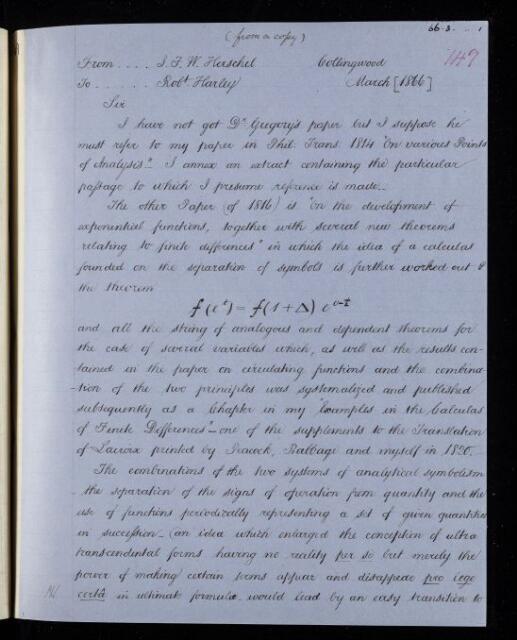 (from a copy)
149
From .... J. F. W. Herschel Collingwood
To ...... Robt Harley March [1866]
Sir
I have not got Dr Gregory's paper but I suppose he
must refer to my paper in Phil. Trans. 1814 "On various Points
of Analysis". I annex an extract containing the particular
passage to which I presume reference is made.
The other Paper (of 1816) is "On the development of
exponential functions, together with several new theorems
relating to finite differences" in which the idea of a calculus
founded on the separation of symbols is further worked out &
the theorem
f(e^t) = f(1+Δ) e^{o·t}
and all the string of analogous and dependent theorems for
the case of several variables which, as well as the results con-
tained in the paper on circulating functions and the combina-
-tion of the two principles was systematized and published
subsequently as a Chapter in my "Examples in the Calculus
of Finite Differences" – one of the supplements to the Translation
of Lacroix printed by Peacock, Babbage and myself in 1820.
The combinations of the two systems of analytical symbolism
the separation of the signs of operation from quantity and the
use of functions periodically representing a set of given quantities
in succession – (an idea which enlarged the conception of ultra
transcendental forms having no reality per se but merely the
power of making certain terms appear and disappear pro lege
certâ in ultimate formulæ would lead by an easy transition to